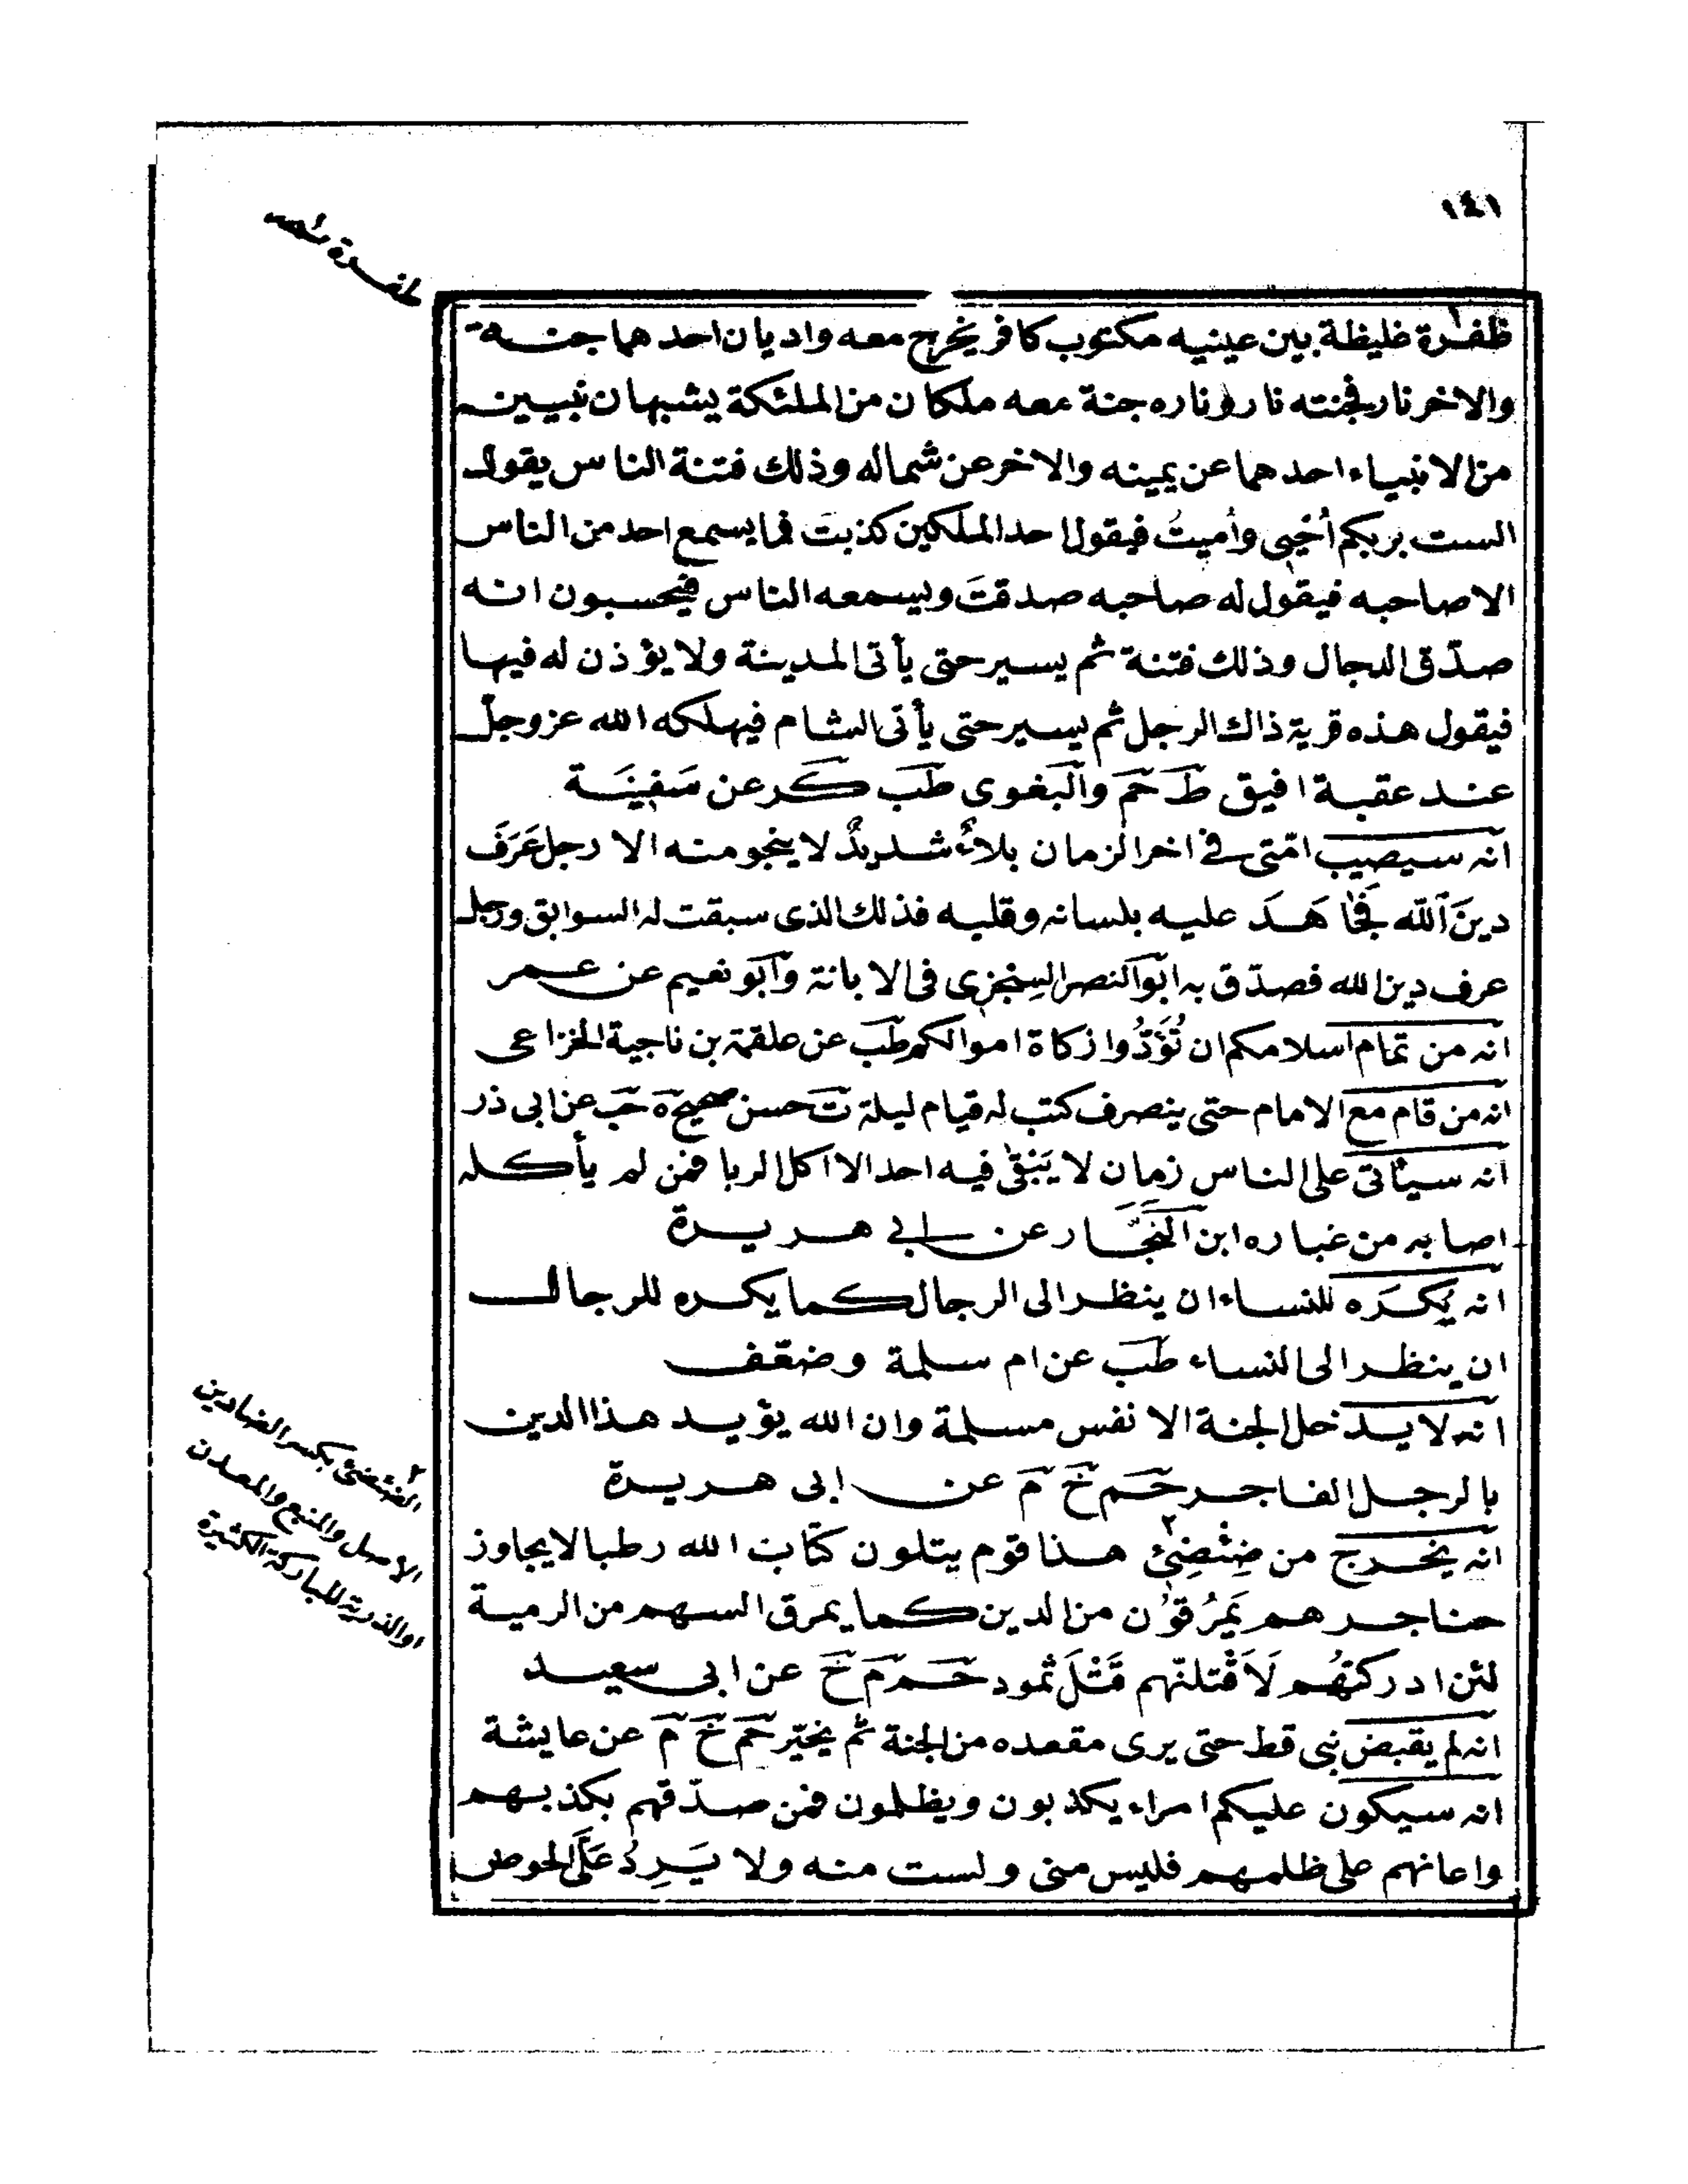 ١٤١
ظفرة غليظة بين عينيه مكتوب كافر يخرج معه واديان احدهما جنة
والاخر نار فجنته نار وناره جنة معه ملكان من الملئكة يشبهان نبيين
من الانبياء احدهما عن يمينه والاخر عن شماله وذلك فتنة الناس يقول
الست بربكم أُحيى وأُميتُ فيقول احد الملكين كذبتَ فما يسمع احد من الناس
الا صاحبه فيقول له صاحبه صدقتَ ويسمعه الناس فيحسبون انه
صدّق الدجال وذلك فتنة ثم يسير حتى يأتى المدينة ولا يؤذن له فيها
فيقول هذه قرية ذاك الرجل ثم يسير حتى يأتى الشام فيهلكه الله عز وجلّ
عند عقبة افيق ط حم والبغوى طب كر عن سَفِينَة
انه سيصيب امّتى فى اخر الزمان بلاءٌ شديدٌ لا ينجو منه الا رجل عَرَفَ
دينَ الله فجَاهَدَ عليه بلسانه وقلبه فذلك الذى سبقت له السوابق ورجل
عرف دين الله فصدّق به ابو النصر السِجْزِى فى الابانة وابو نعيم عن عمر
انه من تمام اسلامكم ان تُؤَدُّوا زكاة اموالكم طب عن علقمة بن ناجية الخزاعى
انه من قام مع الامام حتى ينصرف كتب له قيام ليلة ت حسن صحيح ه حب عن ابى ذر
انه سيأتى على الناس زمان لا يَبْقىٰ فيه احد الا اكل الربا فمن لم يأكله
اصابه من غباره ابن النَجَّار عن ابى هريرة
انه يُكرَه للنساء ان ينظر الى الرجال كما يكره للرجال
ان ينظر الى النساء طب عن ام سلمة وضعّف
انه لا يدخل الجنة الا نفس مسلمة وان الله يؤيد هذا الدين
بالرجل الفاجر حم خ م عن ابى هريرة
انه يخرج من ضِئْضِئِ هذا قوم يتلون كتاب الله رطبا لا يجاوز
حناجرهم يَمرُقوْن من الدين كما يمرق السهم من الرمية
لئن ادركتهُم لَاَقْتلنّهم قَتْلَ ثمود حم م خ عن ابى سعيد
انه لم يقبض نبى قط حتى يرى مقعده من الجنة ثم يخيّر حم خ م عن عايشة
انه سيكون عليكم امراء يكذبون ويظلمون فمن صدّقهم بكذبهم
واعانهم على ظلمهم فليس منى ولست منه ولا يَرِدُ عَلَىَّ الحوض
٢
الضئضئ بكسر الضادين
الاصل والمنبع والمعدن
اوالذرية المباركة الكثيرة